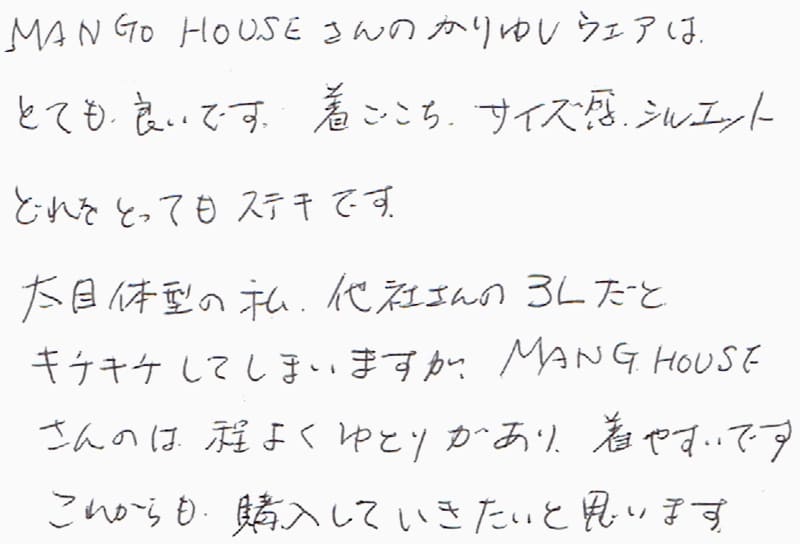 MANGO HOUSE さんのかりゆしウェアは、
とても、良いです。着ごこち、サイズ感、シルエット
どれをとってもステキです。
太目体型の私、代社さんの3Lだと
キチキチしてしまいますが、MANG.HOUSE
さんのは、程よくゆとりがあり、着やすいです
これからも、購入していきたいと思います。